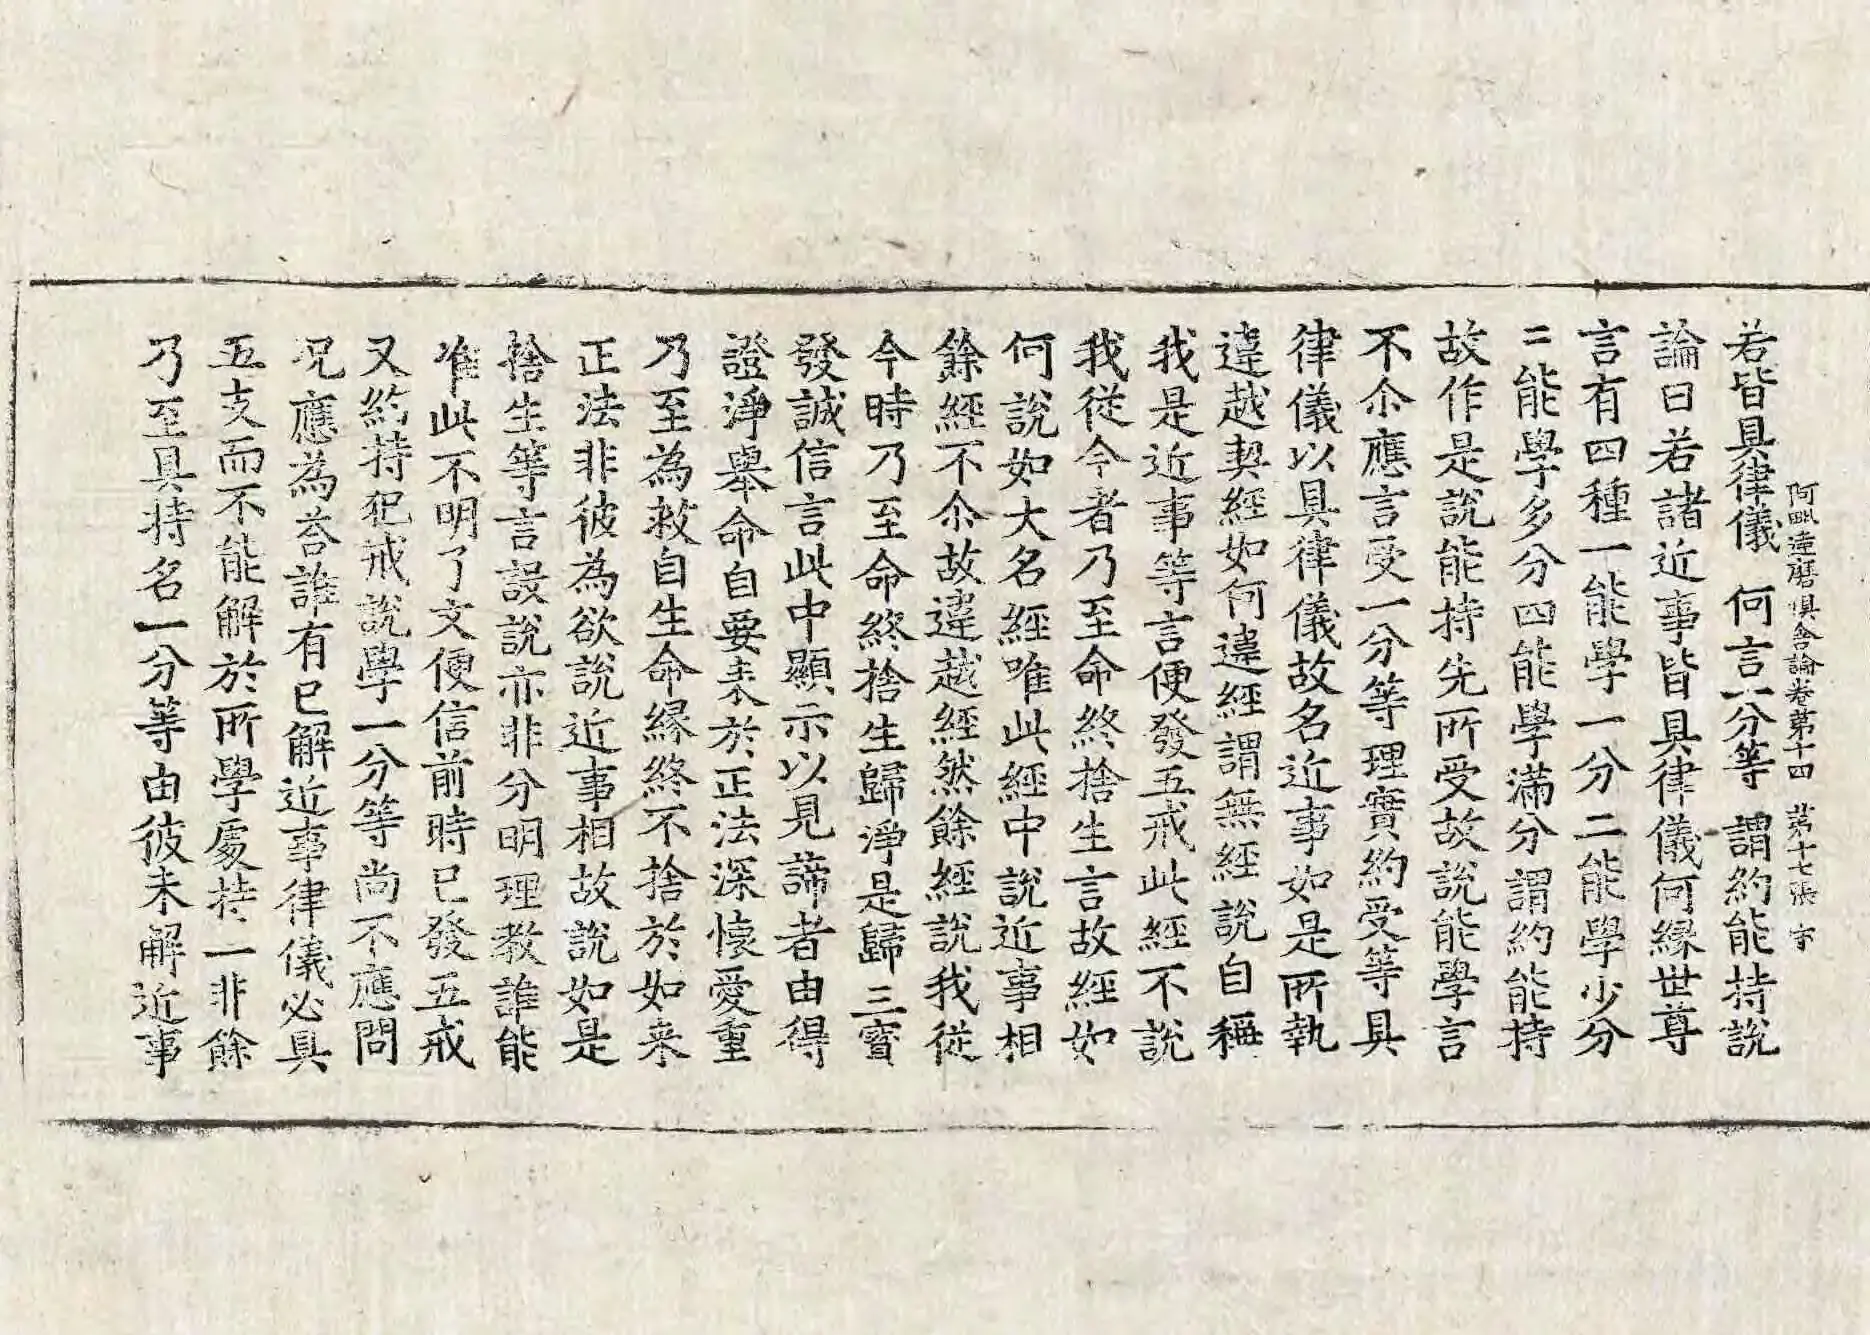 阿毗達磨俱舍論卷第十四 苐十七張 字
若皆具律儀 何言一分等 謂約能持說
論曰若諸近事皆具律儀何縁世尊
言有四種一能學一分二能學少分
三能學多分四能學滿分謂約能持
故作是說能持先所受故說能學言
不尒應言受一分等理實約受等具
律儀以具律儀故名近事如是所執
違越契經如何違經謂無經說自稱
我是近事等言便發五戒此經不說
我從今者乃至命終捨生言故經如
何說如大名經唯此經中說近事相
餘經不尒故違越經然餘經說我從
今時乃至命終捨生歸淨是歸三寶
發誠信言此中顯示以見諦者由得
證淨舉命自要表於正法深懷愛重
乃至為救自生命縁終不捨於如来
正法非彼為欲說近事相故說如是
捨生等言設說亦非分明理教誰能
准此不明了文便信前時已發五戒
又約持犯戒說學一分等尚不應問
况應為荅誰有已解近事律儀必具
五支而不能解於所學處持一非餘
乃至具持名一分等由彼未解近事